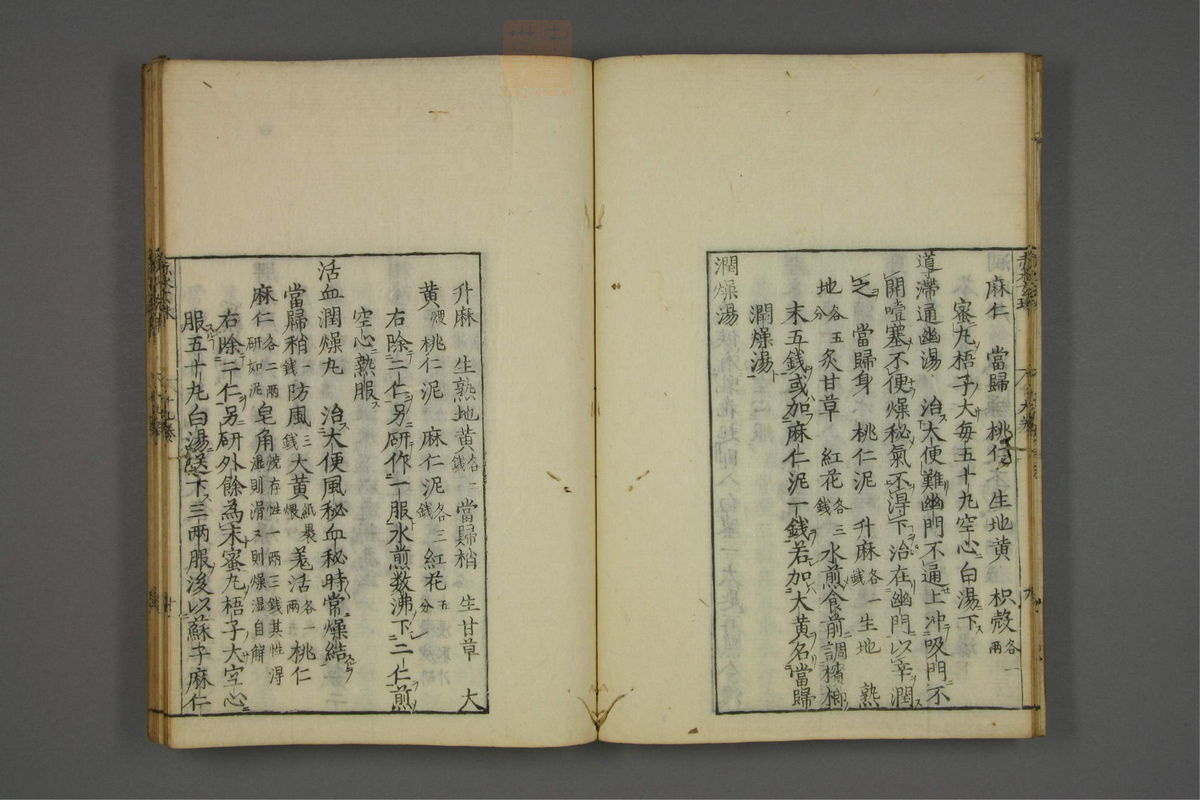 麻仁　當歸　桃仁　生地黄　枳殻各一兩
蜜丸梧子大每五十丸空心白湯下
導滯通幽湯　治大便難幽門不通上冲吸門不
開噎塞不便燥秘氣不得下治在幽門以辛潤
之　當歸身　桃仁泥　升麻各一錢　生地　熟
地各五分　炙甘草　紅花各三錢　水煎食前調檳榔
末五錢或加麻仁泥一錢若加大黄名當歸
潤燥湯
潤燥湯
升麻　生熟地黄各一錢　當歸梢　生甘草　大
黄煨　桃仁泥　麻仁泥各三錢　紅花五分
右除二仁另研作一服水煎数沸下二仁煎
空心熱服
活血潤燥丸　治大便風秘血秘時常燥結
當歸梢一錢　防風三錢　大黄紙裹煨　羌活各一兩　桃仁
麻仁各二兩研如泥　皂角燒存性一兩三錢其性得濕則滑又則燥濕自觧
右除二仁另研外餘為末蜜丸梧子大空心
服五十丸白湯送下三兩服後以蘇子麻仁